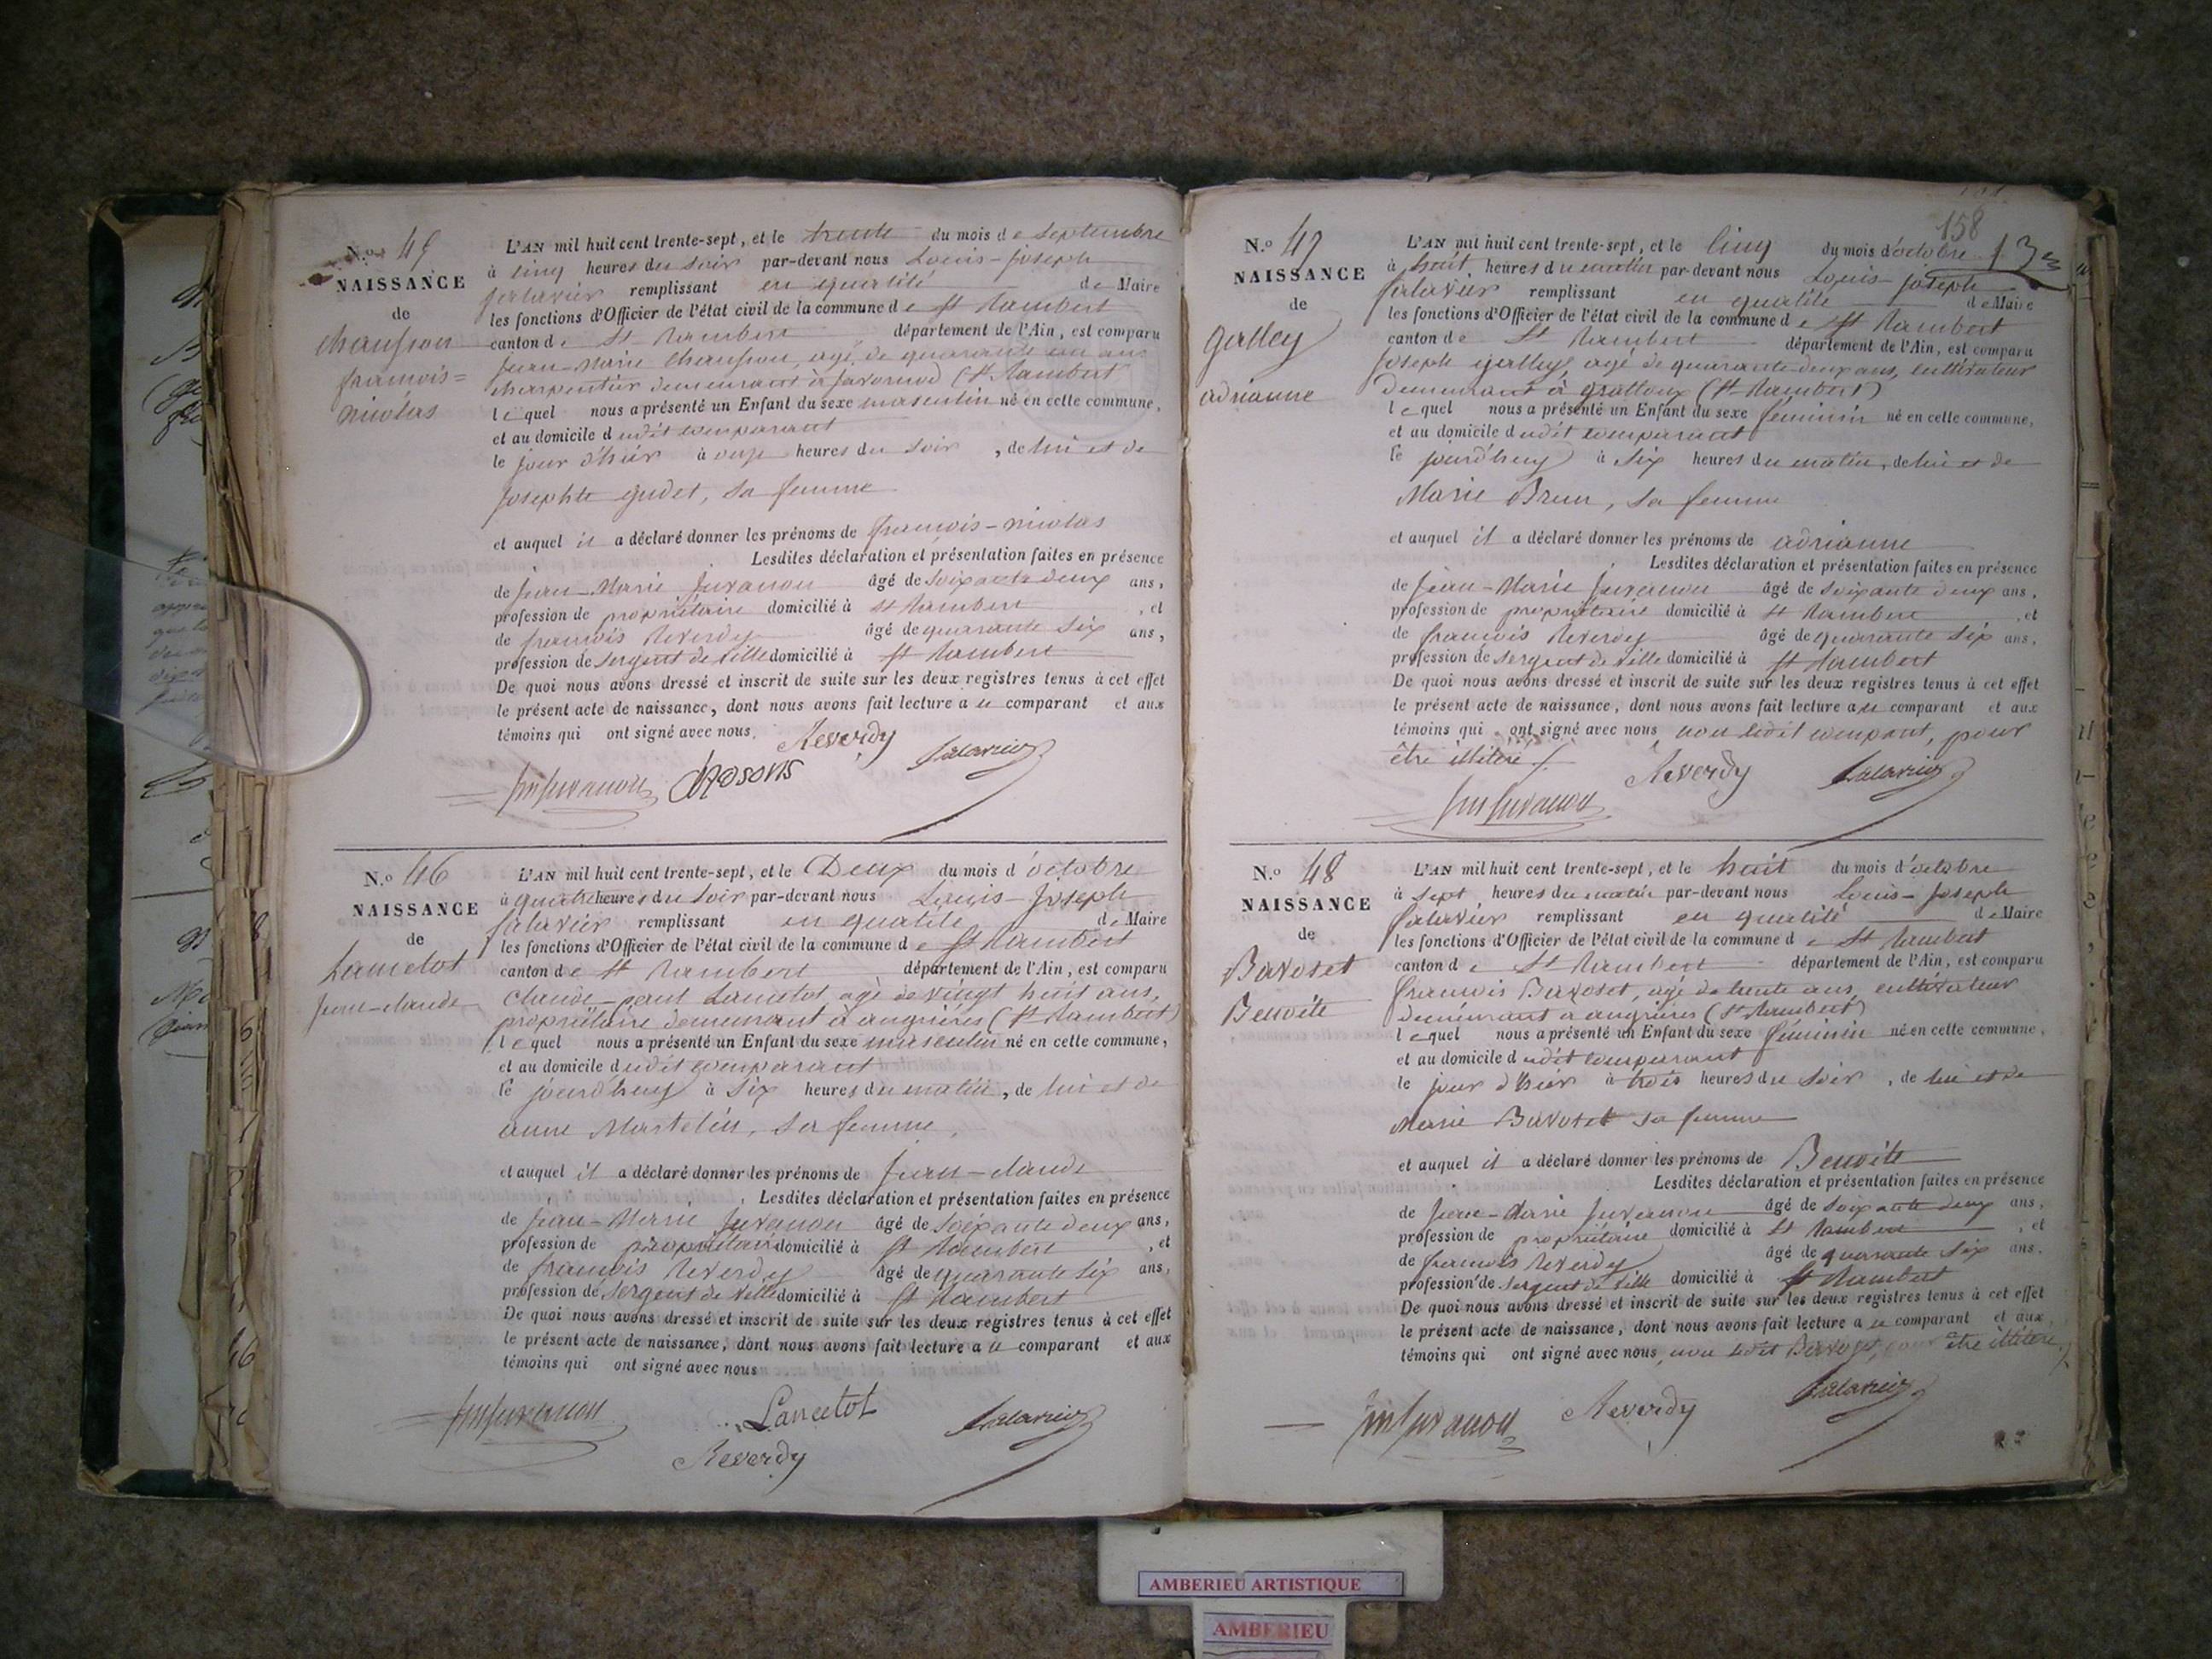 N.o 45
NAISSANCE
de
Chanson
françois=
nicolas
L'AN mil huit cent trente-sept, et le trente du mois de Septembre
à cinq heures du soir par-devant nous Louis-Joseph
Salavier remplissant en qualité de Maire
les fonctions d'Officier de l'état civil de la commune de St Rambert
canton de St Rambert département de l'Ain, est comparu
Jean-Marie Chanson, agé de quarante un ans
charpentier demeurant à Javornod (St Rambert
lequel nous a présenté un Enfant du sexe masculin né en cette commune,
et au domicile dudit comparant
le jour d'hier à onze heures du soir, de lui et de
Josephte Gudet, sa femme
et auquel il a déclaré donner les prénoms de françois-nicolas
Lesdites déclaration et présentation faites en présence
de Jean-Marie Juvanon âgé de soixante deux ans,
profession de propriétaire domicilié à St Rambert, et
de françois Reverdy âgé de quarante six ans,
profession de sergent de ville domicilié à St Rambert
De quoi nous avons dressé et inscrit de suite sur les deux registres tenus à cet effet
le présent acte de naissance, dont nous avons fait lecture au comparant et aux
témoins qui ont signé avec nous.
Reverdy
Salavier
Juvanon
N.o 46
NAISSANCE
de
Lancelot
Jean-claude
L'AN mil huit cent trente-sept, et le Deux du mois d'octobre
à quatre heures du soir par-devant nous Louis-Joseph
Salavier remplissant en qualité de Maire
les fonctions d'Officier de l'état civil de la commune de St Rambert
canton de St Rambert département de l'Ain, est comparu
Claude-paul Lancelot, agé de vingt huit ans,
propriétaire demeurant à angrières (St Rambert)
lequel nous a présenté un Enfant du sexe masculin né en cette commune,
et au domicile dudit comparant
le jourd'huy à six heures du matin, de lui et de
anne Martelin, sa femme,
et auquel il a déclaré donner les prénoms de Jean-claude
Lesdites déclaration et présentation faites en présence
de Jean-Marie Juvanon âgé de soixante deux ans,
profession de propriétaire domicilié à St Rambert, et
de françois Reverdy âgé de quarante six ans,
profession de sergent de ville domicilié à St Rambert
De quoi nous avons dressé et inscrit de suite sur les deux registres tenus à cet effet
le présent acte de naissance, dont nous avons fait lecture au comparant et aux
témoins qui ont signé avec nous
Juvanon
Lancelot
Salavier
Reverdy
158
N.o 47
NAISSANCE
de
galley
adrianne
L'AN mil huit cent trente-sept, et le cinq du mois d'octobre
à huit heures du matin par-devant nous Louis-Joseph
Salavier remplissant en qualité de Maire
les fonctions d'Officier de l'état civil de la commune de St Rambert
canton de St Rambert département de l'Ain, est comparu
Joseph galley, agé de quarante deux ans, cultivateur
demeurant à grattoux (St Rambert)
lequel nous a présenté un Enfant du sexe féminin né en cette commune,
et au domicile dudit comparant
le jourd'huy à six heures du matin, de lui et de
Marie Brun, sa femme
et auquel il a déclaré donner les prénoms de adrianne
Lesdites déclaration et présentation faites en présence
de Jean-Marie Juvanon âgé de soixante deux ans,
profession de propriétaire domicilié à St Rambert, et
de françois Reverdy âgé de quarante six ans,
profession de sergent de ville domicilié à St Rambert
De quoi nous avons dressé et inscrit de suite sur les deux registres tenus à cet effet
le présent acte de naissance, dont nous avons fait lecture au comparant et aux
témoins qui ont signé avec nous, non ledit compant, pour
être illitéré
Reverdy
Salavier
Juvanon
N.o 48
NAISSANCE
de
Bavoset
Benoite
L'AN mil huit cent trente-sept, et le huit du mois d'octobre
à sept heures du matin par-devant nous Louis-Joseph
Salavier remplissant en qualité de Maire
les fonctions d'Officier de l'état civil de la commune de St Rambert
canton de St Rambert département de l'Ain, est comparu
françois Bavoset, agé de trente ans, cultivateur
demeurant à angrières (St Rambert)
lequel nous a présenté un Enfant du sexe féminin né en cette commune,
et au domicile dudit comparant
le jour d'hier à trois heures du soir, de lui et de
Marie Bavoset sa femme
et auquel il a déclaré donner les prénoms de Benoite
Lesdites déclaration et présentation faites en présence
de Jean-Marie Juvanon âgé de soixante deux ans,
profession de propriétaire domicilié à St Rambert, et
de françois Reverdy âgé de quarante six ans.
profession de sergent de ville domicilié à St Rambert
De quoi nous avons dressé et inscrit de suite sur les deux registres tenus à cet effet
le présent acte de naissance, dont nous avons fait lecture au comparant et aux
témoins qui ont signé avec nous, non ledit Bavoset, pour être illitéré
Juvanon
Reverdy
Salavier
AMBERIEU ARTISTIQUE
AMBERIEU